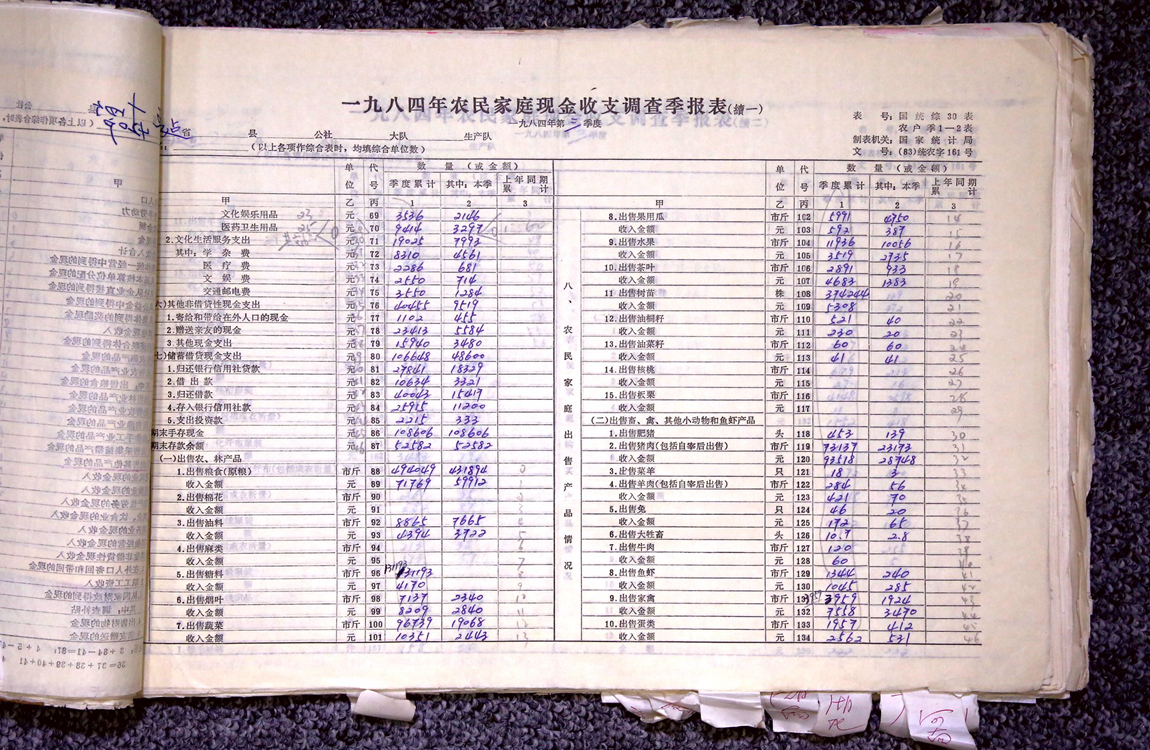 一九八四年农民家庭现金收支调查季报表(续一)
一九八四年第三季度
表 号: 国统综30表
农户季1—2表
制表机关: 国家统计局
文 号: (83)统农字161号
省 县 公社 大队 生产队
(以上各项作综合表时,均填综合单位数)
甲 单位 代号 数量(或金额) 季度累计 其中:本季 上年同期累计
乙 丙 1 2 3
文化娱乐用品 元 69 3536 2146
医药卫生用品 元 70 9414 3297
2.文化生活服务支出 元 71 19025 7993
其中:学杂费 元 72 8310 4561
医疗费 元 73 2286 681
文娱费 元 74 2550 714
交通邮电费 元 75 3550 1284
(六)其他非借贷性现金支出 元 76 40455 9519
1.寄给和带给在外人口的现金 元 77 1102 455
2.赠送亲友的现金 元 78 23413 5584
3.其他现金支出 元 79 15940 3480
(七)储蓄借贷现金支出 元 80 106648 48600
1.归还银行信用社贷款 元 81 27841 18329
2.借出款 元 82 10634 3321
3.归还借款 元 83 40043 15417
4.存入银行信用社款 元 84 25915 11200
5.支出投资款 元 85 2215 333
期末手存现金 元 86 108606 108606
期末存款余额 元 87 52582 52582
(一)出售农、林产品
1.出售粮食(原粮) 市斤 88 494049 431894
收入金额 元 89 71769 59912
2.出售棉花 市斤 90
收入金额 元 91
3.出售油料 市斤 92 8865 7665
收入金额 元 93 4394 3722
4.出售麻类 市斤 94
收入金额 元 95
5.出售糖料 市斤 96 131193
收入金额 元 97 4170
6.出售烟叶 市斤 98 7137 2340
收入金额 元 99 8209 2840
7.出售蔬菜 市斤 100 96739 19068
收入金额 元 101 10351 2443
八、农民家庭出售产品情况
甲 单位 代号 数量(或金额) 季度累计 其中:本季 上年同期累计
乙 丙 1 2 3
8.出售果用瓜 市斤 102 5991 4750
收入金额 元 103 592 387
9.出售水果 市斤 104 11936 10056
收入金额 元 105 3519 2735
10.出售茶叶 市斤 106 2891 933
收入金额 元 107 4683 1383
11 出售树苗 株 108 394244
收入金额 元 109 5308
12.出售油桐籽 市斤 110 521 40
收入金额 元 111 230 20
13.出售油菜籽 市斤 112 60 60
收入金额 元 113 41 41
14.出售核桃 市斤 114
收入金额 元 115
15.出售板栗 市斤 116
收入金额 元 117
(二)出售畜、禽、其他小动物和鱼虾产品
1.出售肥猪 头 118 453 139
2.出售猪肉(包括自宰后出售) 市斤 119 73137 23173
收入金额 元 120 93518 28748
3.出售菜羊 只 121 18 3
4.出售羊肉(包括自宰后出售) 市斤 122 284 56
收入金额 元 123 421 70
5.出售兔 只 124 46 20
收入金额 元 125 172 65
6.出售大牲畜 头 126 10.7 2.8
7.出售牛肉 市斤 127 120
收入金额 元 128 60
8.出售鱼虾 市斤 129 1344 240
收入金额 元 130 1045 285
9.出售家禽 市斤 131 3959 1924
收入金额 元 132 7558 3470
10.出售蛋类 市斤 133 1957 412
收入金额 元 134 2562 531